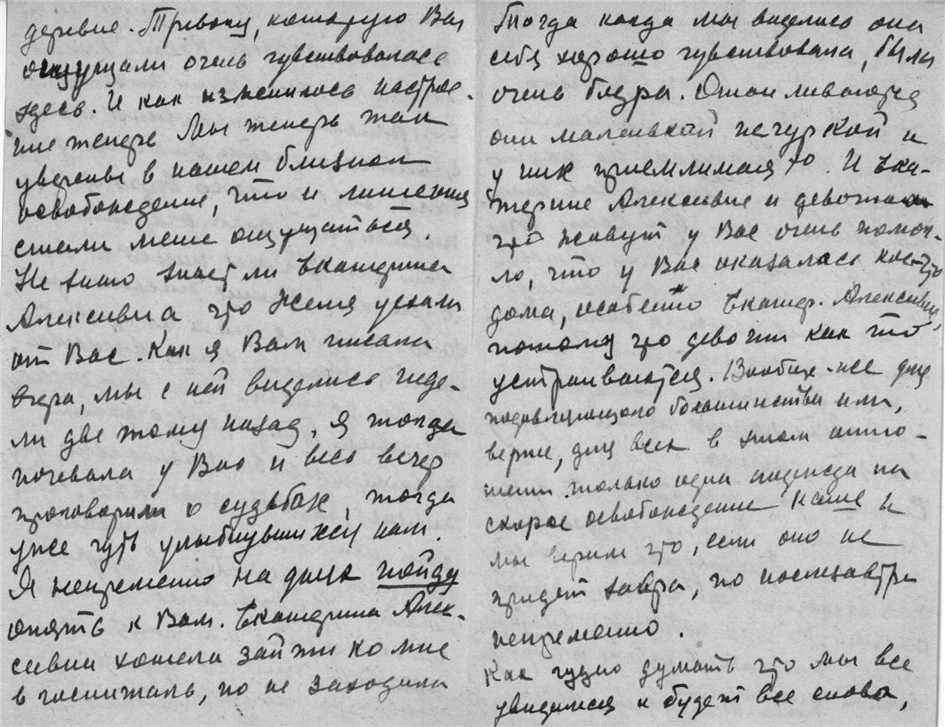 деревне. Тревогу, которую Вы
ощущали очень чувствовалась
здесь. И как изменилось настрое-
ние теперь Мы теперь так
уверены в нашем близком
освобождение, что и лишения
стали менее ощущаться.
Не знаю знает ли Екатерина
Алексивна что Женя уехали
от Вас. Как я Вам писала
вчера, мы с ней виделись неде-
ли две тому назад, я тогда
ночевала у Вас и весь вечер
проговорили о судьбах, тогда
уже чуть улыбнувшихся нам.
Я непременно на днях пойду
опять к Вам. Екатерина Алек-
сивна хотела зайти ко мне
в госпиталь, но не заходила
Тогда когда мы виделись они
себя хорошо чувствовали, были
очень бодры. Отапливаются
они маленькой печуркой и
у них приемлимая t°. И Ека-
терине Алексивне и девочкам
что живут у Вас очень помог-
ло, что у Вас оказалась кое-что
дома, особенно Екатер. Алексивне,
потому что девочки как то
устраиваются. Вообще-же для
подавляющего большинства или,
верне, для всех в этом отно-
шении только одна надежда на
скорое освобождение наше и
мы верим что, если оно не
придет завтра, то послезавтра
непременно.
Как чудно думать что мы все
увидимся и будет все снова,